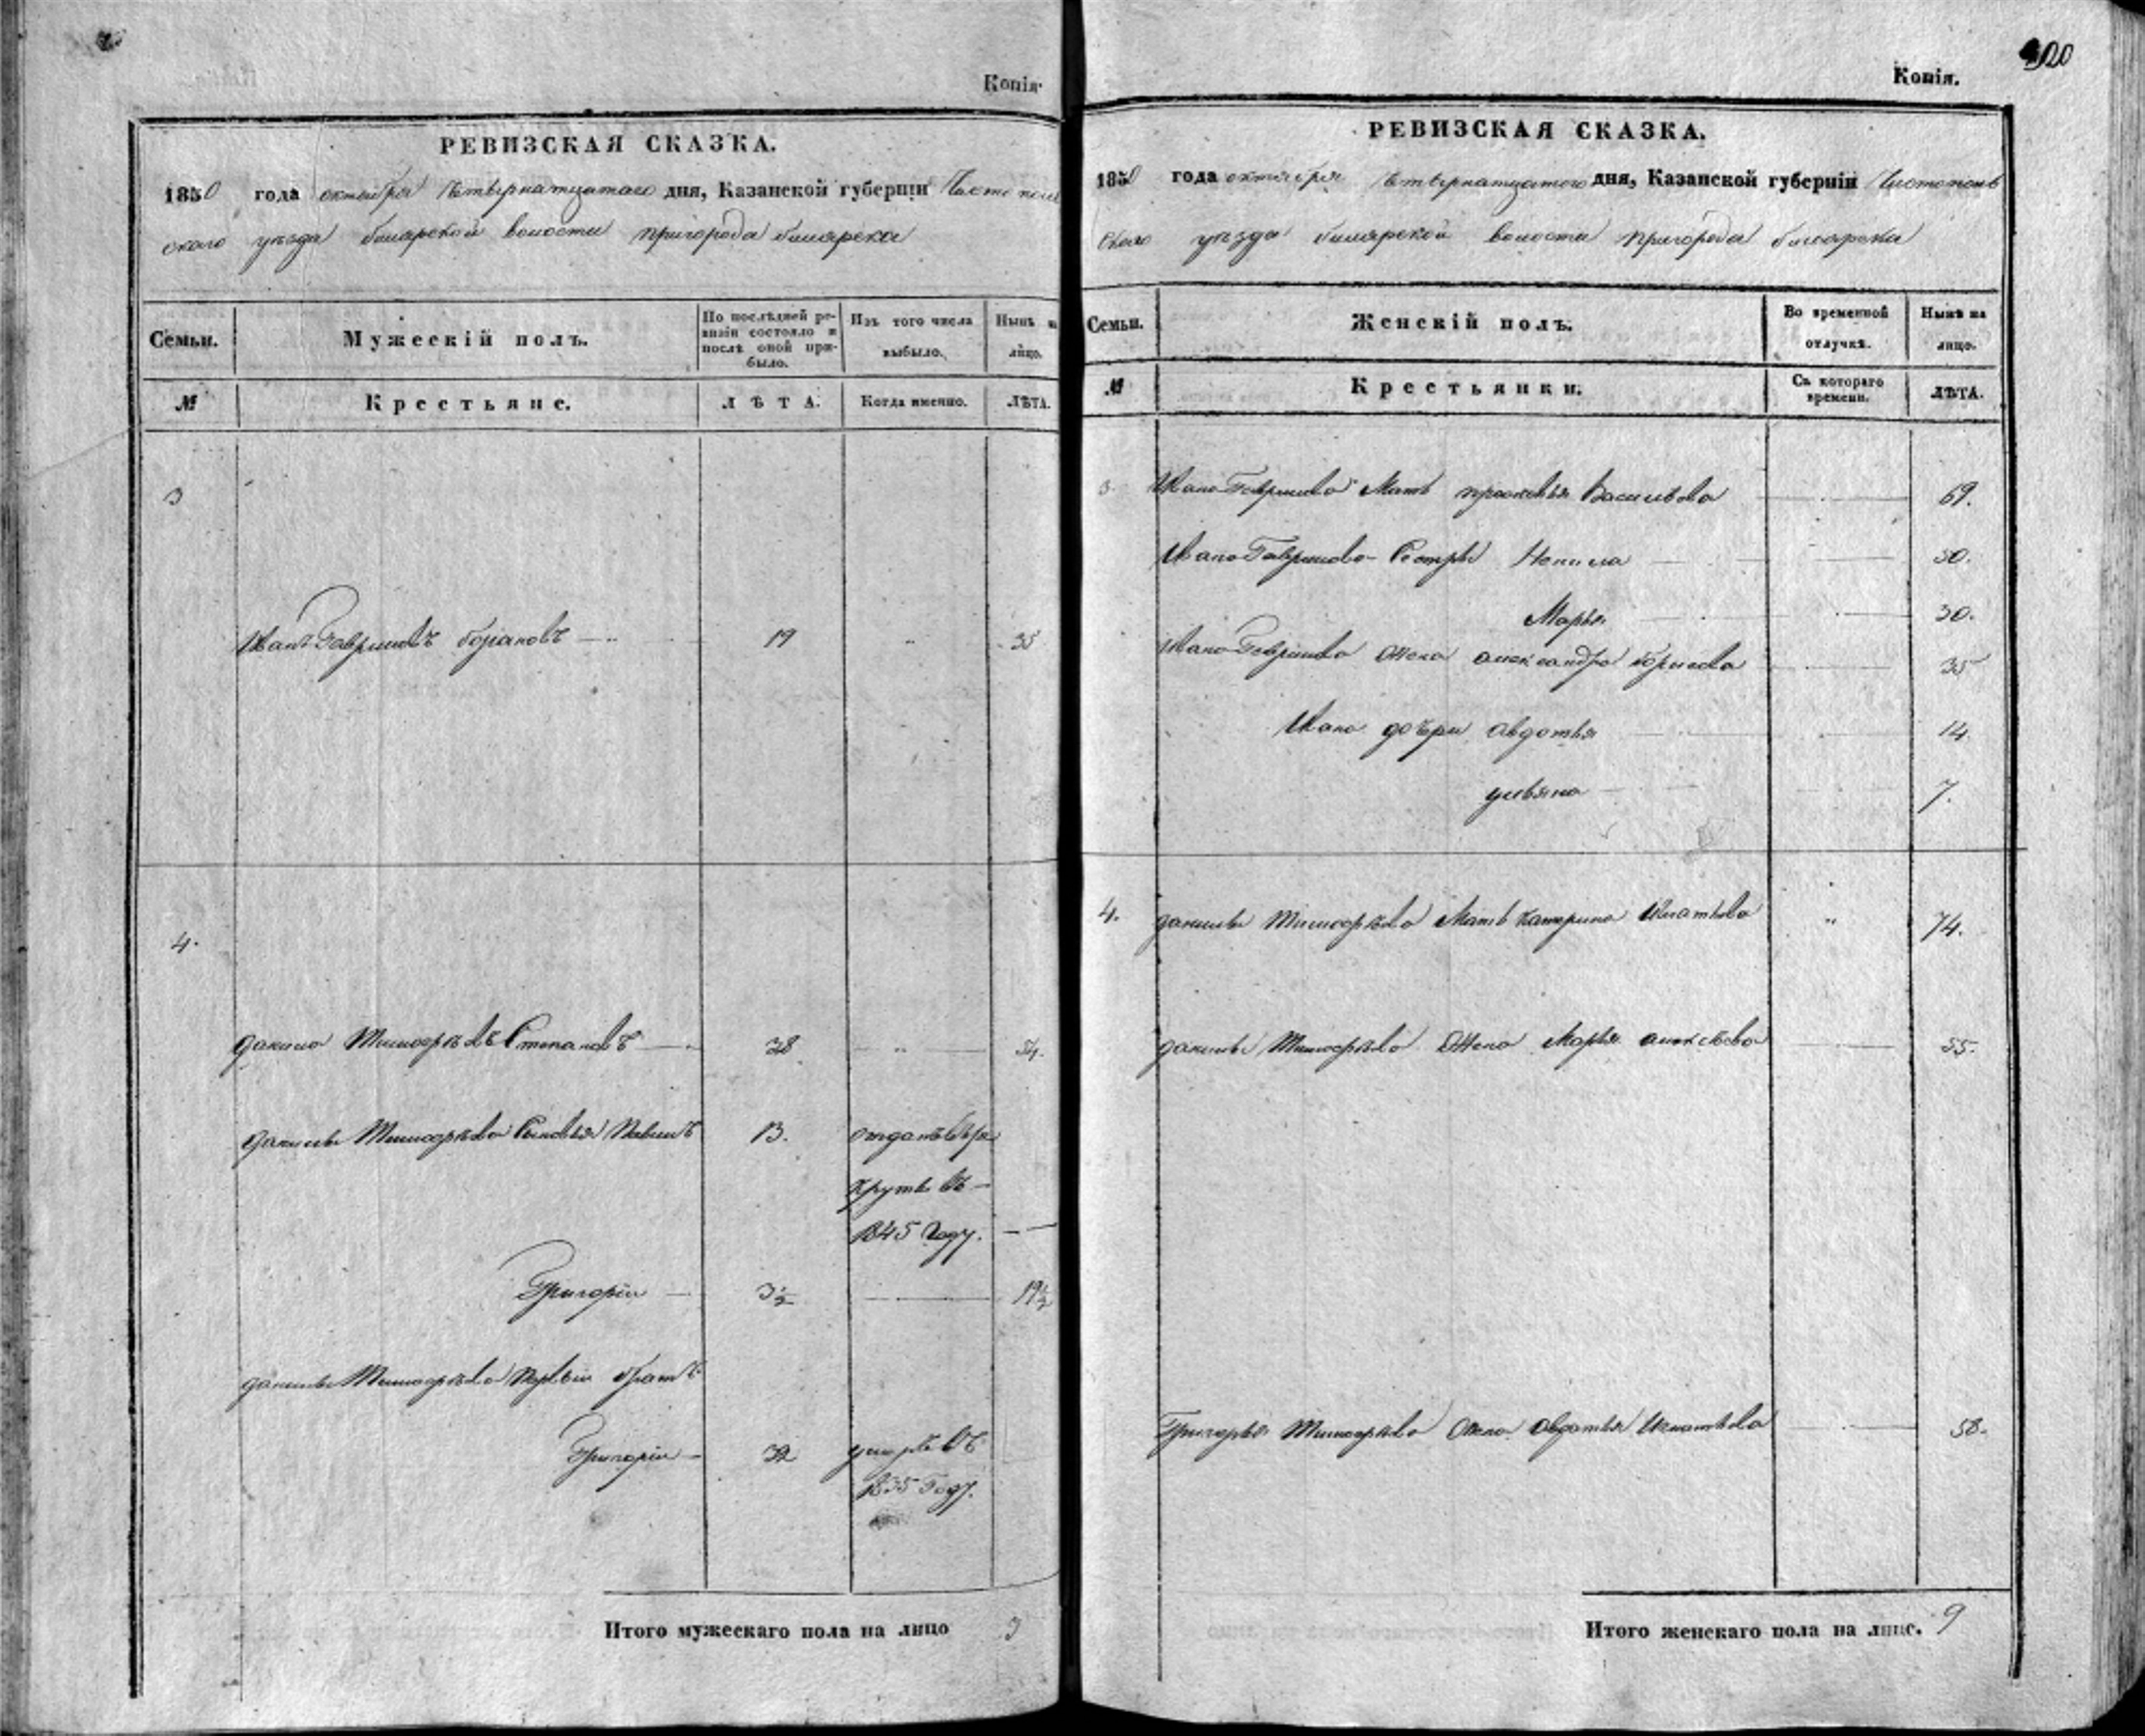 Копія.
РЕВИЗСКАЯ СКАЗКА.
1850 года октября четвернатцатаго дня, Казанской губерніи Чистополь
скаго уѣзда билярской волости пригорода билярска
Семьи.
Мужескій полъ.
По послѣдней ре-
визіи состояло и
послѣ оной при-
было.
Изъ того числа
выбыло.
Нынѣ на
лицо.
№
Крестьяне.
ЛѢТА.
Когда именно.
ЛѢТА.
3
Иванъ Гавриловъ 19 35
4.
данило Тимофѣевъ Степановъ 38 54.
данилы Тимофѣева Сыновья Павилъ 13. отданъ въ ре
круты въ
1845 Году.
Григорій 3½ 19½
данилы Тимофѣева Первый братъ
Григорій 32 умре въ
1835 Году.
Итого мужескаго пола на лицо 3
Копія.
РЕВИЗСКАЯ СКАЗКА.
1850 года октября четвернатцатого дня, Казанской губерніи Чистополь
скаго уѣзда билярской волости пригорода билярска
Семьи.
Женскій полъ.
Во временной
отлучкѣ.
Нынѣ на
лицо.
№
Крестьянки.
Съ котораго
времени.
ЛѢТА.
3. Ивана Гаврилова Мать прасковья Васильева 69.
Ивана Гаврилова Сестры 30.
Марья 30.
Ивана Гаврилова Жена александра 35
Ивана дочери авдотья 14
ульяна 7.
4. данилы Тимофѣева Мать катерина Игнатьева 74.
данилы Тимофѣева Жена Марья алексѣева 55.
Григорья Тимофѣева Жена авдотья Игнатьева 58.
Итого женскаго пола на лицо. 9